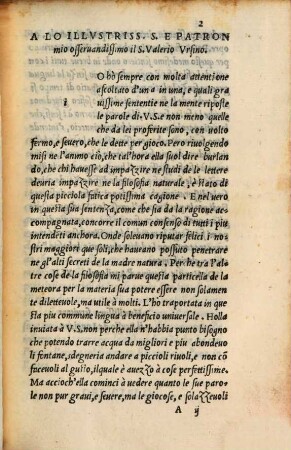 2
A LO ILLVSTRISS. S. E PATRON
mio osseruandissimo il S. Valerio Vrsino.
O hò sempre con molta attentione
ascoltato d'una in una, e quali gra
i
uissime sententie ne la mente riposte
le parole di V.S.e non meno quelle
che da lei proferite sono, con uolto
fermo, e seuero, che le dette per gioco. Pero riuolgendo
misi ne l'animo ciò, che tal'hora ella suol dire burlan
do, che chi hauesse ad impazzire ne studi de le lettere
deuria impazzire ne la filosofia naturale, è stato di
questa picciola fatica potissima cagione. E nel uero
in questa sua sentenza, come che sia da la ragione ac=
compagnata, concorre il comun consenso di tutti i piu
intendēti anchora. Onde soleuano riputar felici i no
stri maggiori que soli, che haueano possuto penetrare
ne gl'alti secreti de la madre natura. Per he tra l'al
tre cose de la filosofia mi parue questa particella de la
meteora per la materia sua potere essere non solamen
te diletteuole, ma utile à molti. L'hò traportata in que
sta piu commune lingua à beneficio uniuersale. Holla
inuiata à V.S.non perche ella n'habbia punto bisogno
che potendo trarre acqua da migliori e piu abondeuo
li fontane, sdegneria andare a piccioli riuoli, e non cō
faceuoli al gusto, ilquale è auezzo à cose perfettissime.
Ma accioch'ella cominci à uedere quanto le sue paro
le non pur graui, e seuere, ma le giocose, e solazzeuoli
A ij